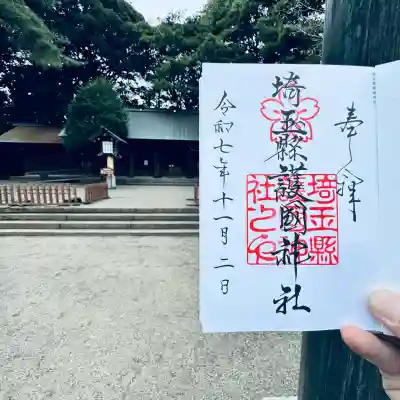 奉拝
埼玉縣護國神社
令和七年十一月二日
埼玉縣
護國神
社之印